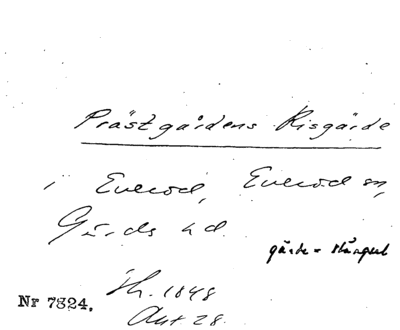 Prästgårdens Risgärde
i Everöd, Everöd sn,
Gärds hd.
gärde = stängsel
Sk. 1848
Ant 28.
Nr 7824.